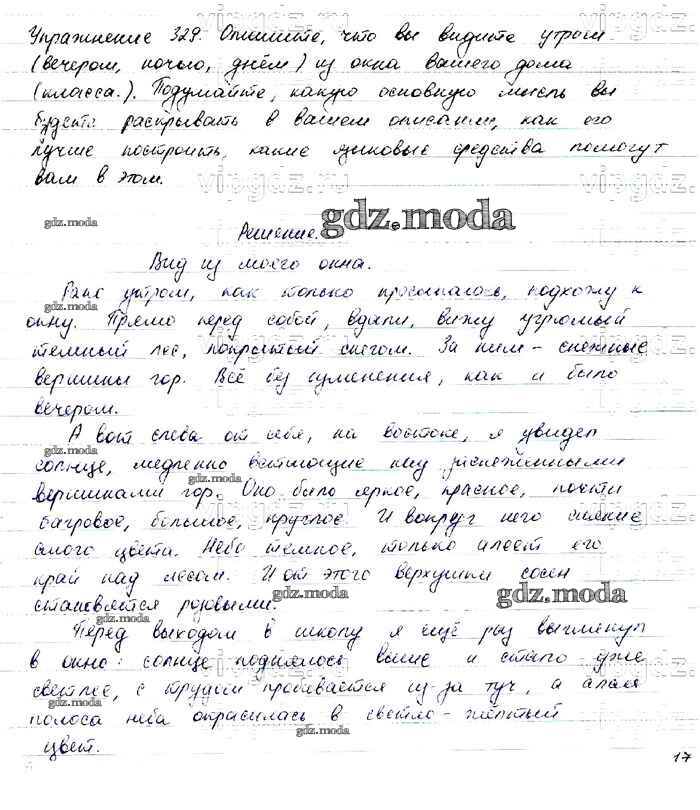 Упражнение 329. Опишите, что вы видите утром
(вечером, ночью, днём) из окна вашего дома
(класса.). Подумайте, какую основную мысль вы
будете раскрывать в вашем описании, как его
лучше построить, какие языковые средства помогут
вам в этом.
gdz.moda
Решение.
gdz.moda
Вид из моего окна.
Рано утром, как только просыпаюсь, подхожу к
окну. Прямо перед собой, вдали, вижу угрюмый
темный лес, покрытый снегом. За ним - снежные
вершины гор. Всё без изменения, как и было
вечером.
А вот слева от себя, на востоке, я увидел
солнце, медленно встающее над заснеженными
вершинами гор. Оно было яркое, красное, почти
багровое, большое, круглое. И вокруг него сияние
алого цвета. Небо темное, только алеет его
край над лесом. И от этого верхушки сосен
становятся розовыми.
Перед выходом в школу я ещё раз выглянул
в окно: солнце поднялось выше и стало уже
светлее, с трудом пробивается из-за туч, а алая
полоса неба окрасилась в светло-жёлтый
цвет.
17